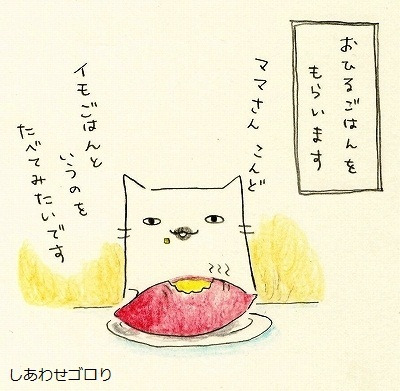 おひるごはんを
もらいます
ママさん こんど
イモごはんと
いうのを
たべてみたいです
しあわせゴロり